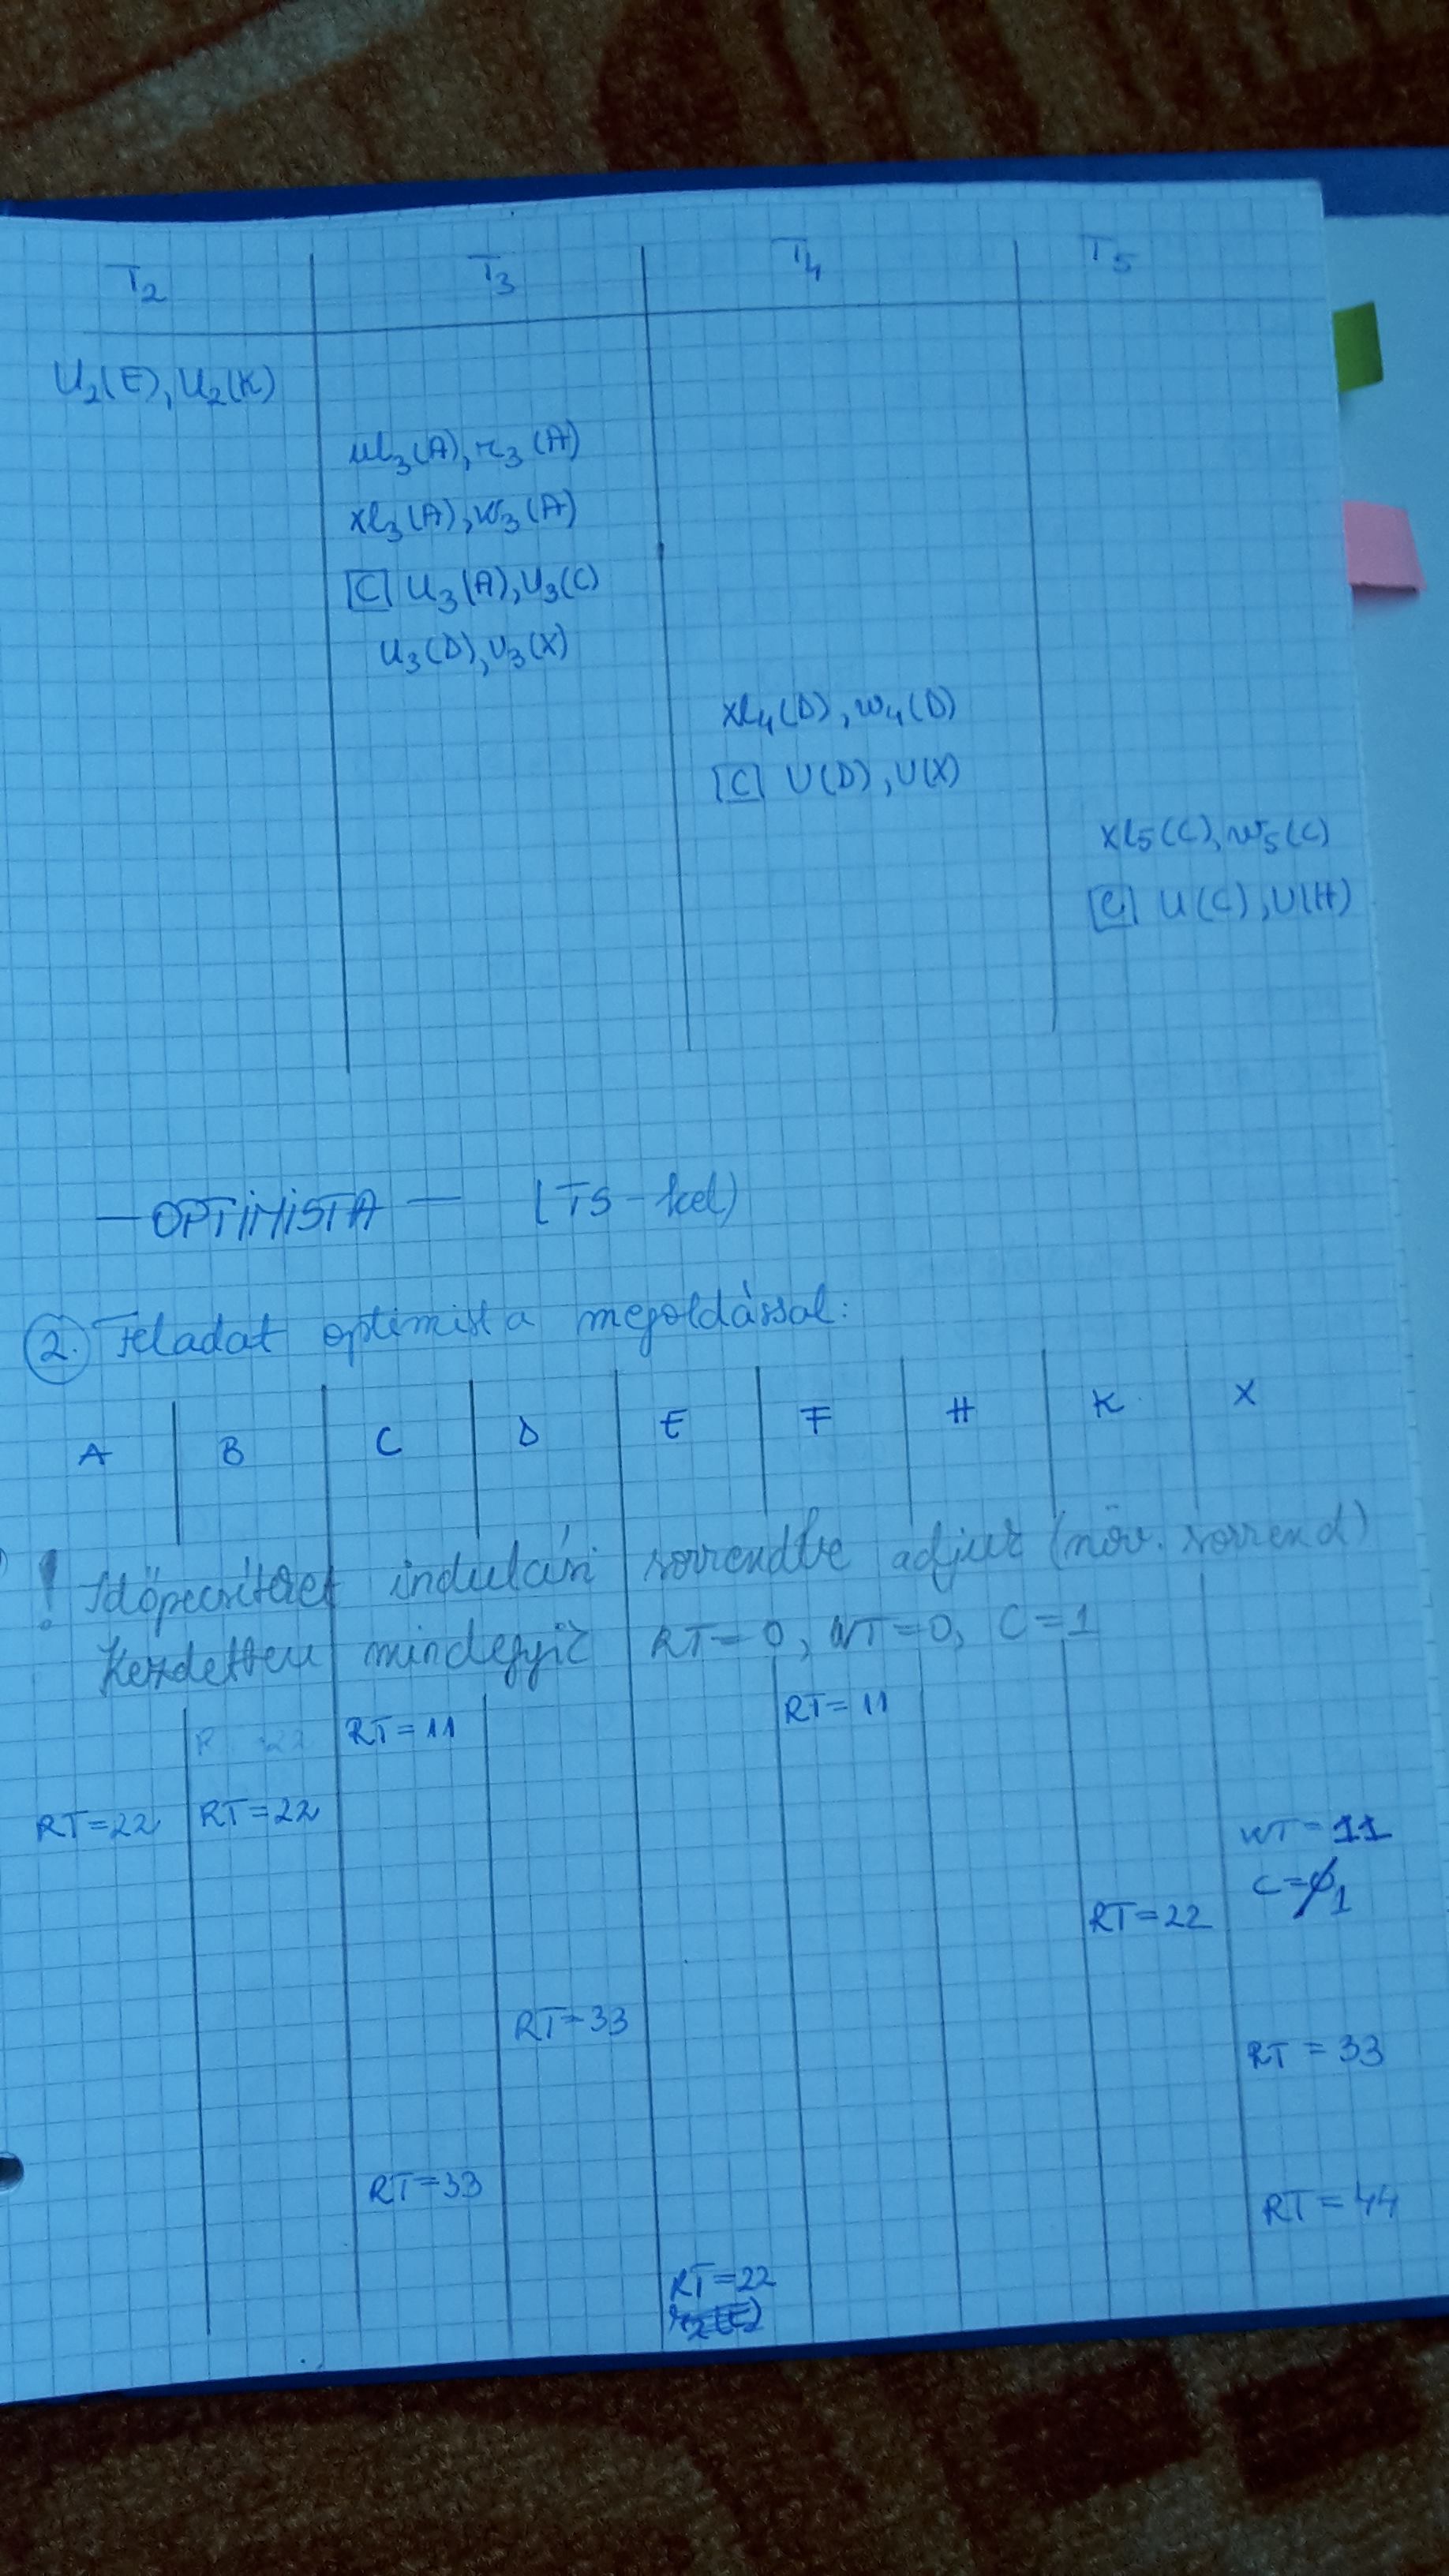 T2 T3 T4 T5
U2(E), U2(K)
ul3(A), r3(A)
xl3(A), w3(A)
C U3(A), U3(C)
U3(D), U3(X)
xl4(D), w4(D)
C U(D), U(X)
xl5(C), w5(C)
C U(C), U(H)
— OPTIMISTA — (TS-kel)
2. Feladat optimista megoldással:
A B C D E F H K X
! Időpecsiteket indulási sorrendbe adjuk (növ. sorrend)
Kezdetben mindegyik RT=0, WT=0, C=1
RT=11 RT=11
RT=22 RT=22 WT=11
C=0 1
RT=22
RT=33 RT=33
RT=33 RT=44
RT=22
r2(E)